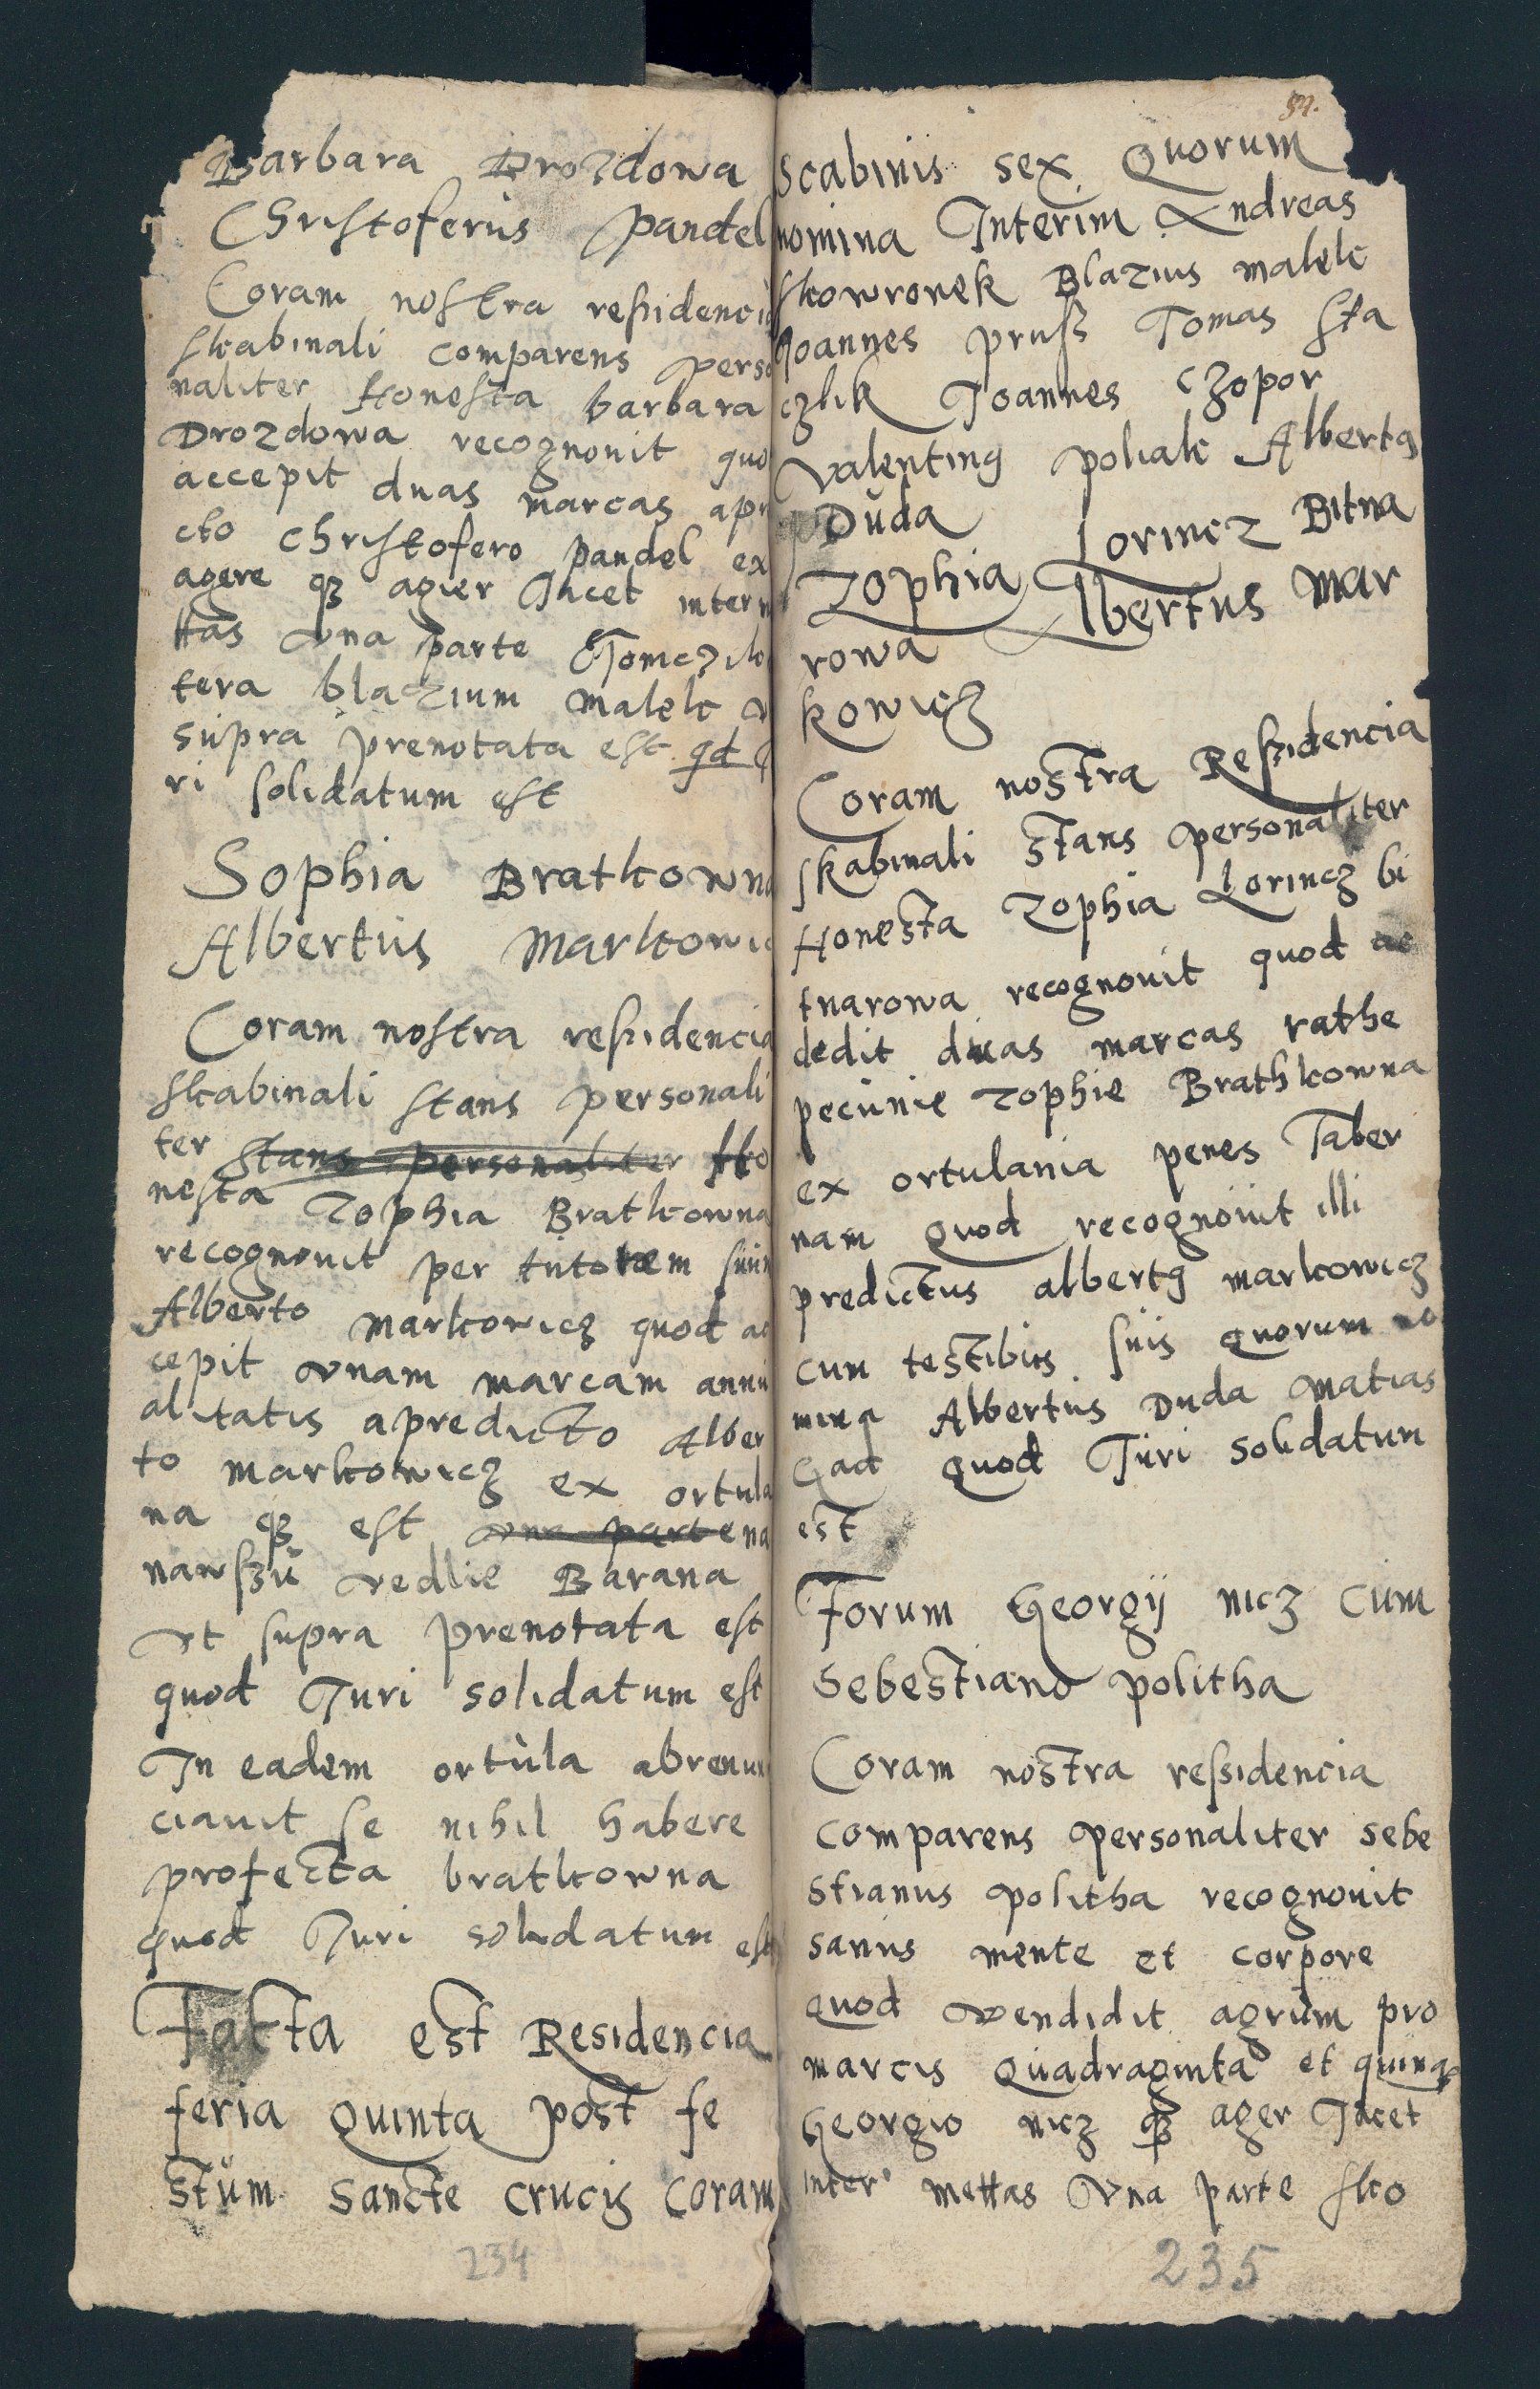 Barbara Drozdowa
Christoferus pandel
Coram nostra ressidenci
skabinali comparens perso
naliter Honesta barbara
Drozdowa recognouit quo
accepit duas marcas apr
cto christofero pandel ex
agere qz agier Jacet inter m
ttas vna parte Tomczik
tera blaczium malek v
supra prenotata est qd J
ri solidatum est
Sophia Brathkowna
Albertus Markowi
Coram nostra ressidencia
skabinali stans personali
ter stans personaliter Ho
nesta Zophia Bratkowna
recognouit per tutorem suum
Alberto markowicz quod ac
cepit vnam marcam annu
alitatis apredicto Alber
to markowicz ex ortula
na qz est vna parte na
nawszu vedlie Barana
vt supra prenotata est
quod Juri solidatum est
In eadem ortula abrenun
ciauit se nihil habere
profecta bratkowna
quod Juri solidatum est
Fatta est Residencia
feria quinta post fe
stum sancte crucis coram
234
54.
Scabinis sex quorum
nomina Interim Andreas
skowronek Blazius malek
Joannes pruss Tomas sta
czlik Joannes czopor
valentinq poliak Albertq
Duda
Zophia Lorincz Bitna
rowa Albertus Mar
kowicz
Coram nostra Ressidencia
skabinali stans personaliter
Honesta Zophia Lorincz bi
tnarowa recognouit quod ac
dedit duas marcas rathe
pecunie Zophie Brathkowna
ex ortulania penes Taber
nam quod recognouit illi
predictus albertq markowicz
cun testibus suis quorum no
mina Albertus Duda Matias
Gad quod Juri solidatun
est
Forum Georgij nicz cum
Sebestiano politha
Coram nostra ressidencia
comparens personaliter sebe
stianus politha recognouit
sanus mente et corpore
quod vendidit agrum pro
marcis quadraginta et quinq
Georgio nicz qz ager Jacet
inter mettas vna parte sko
235